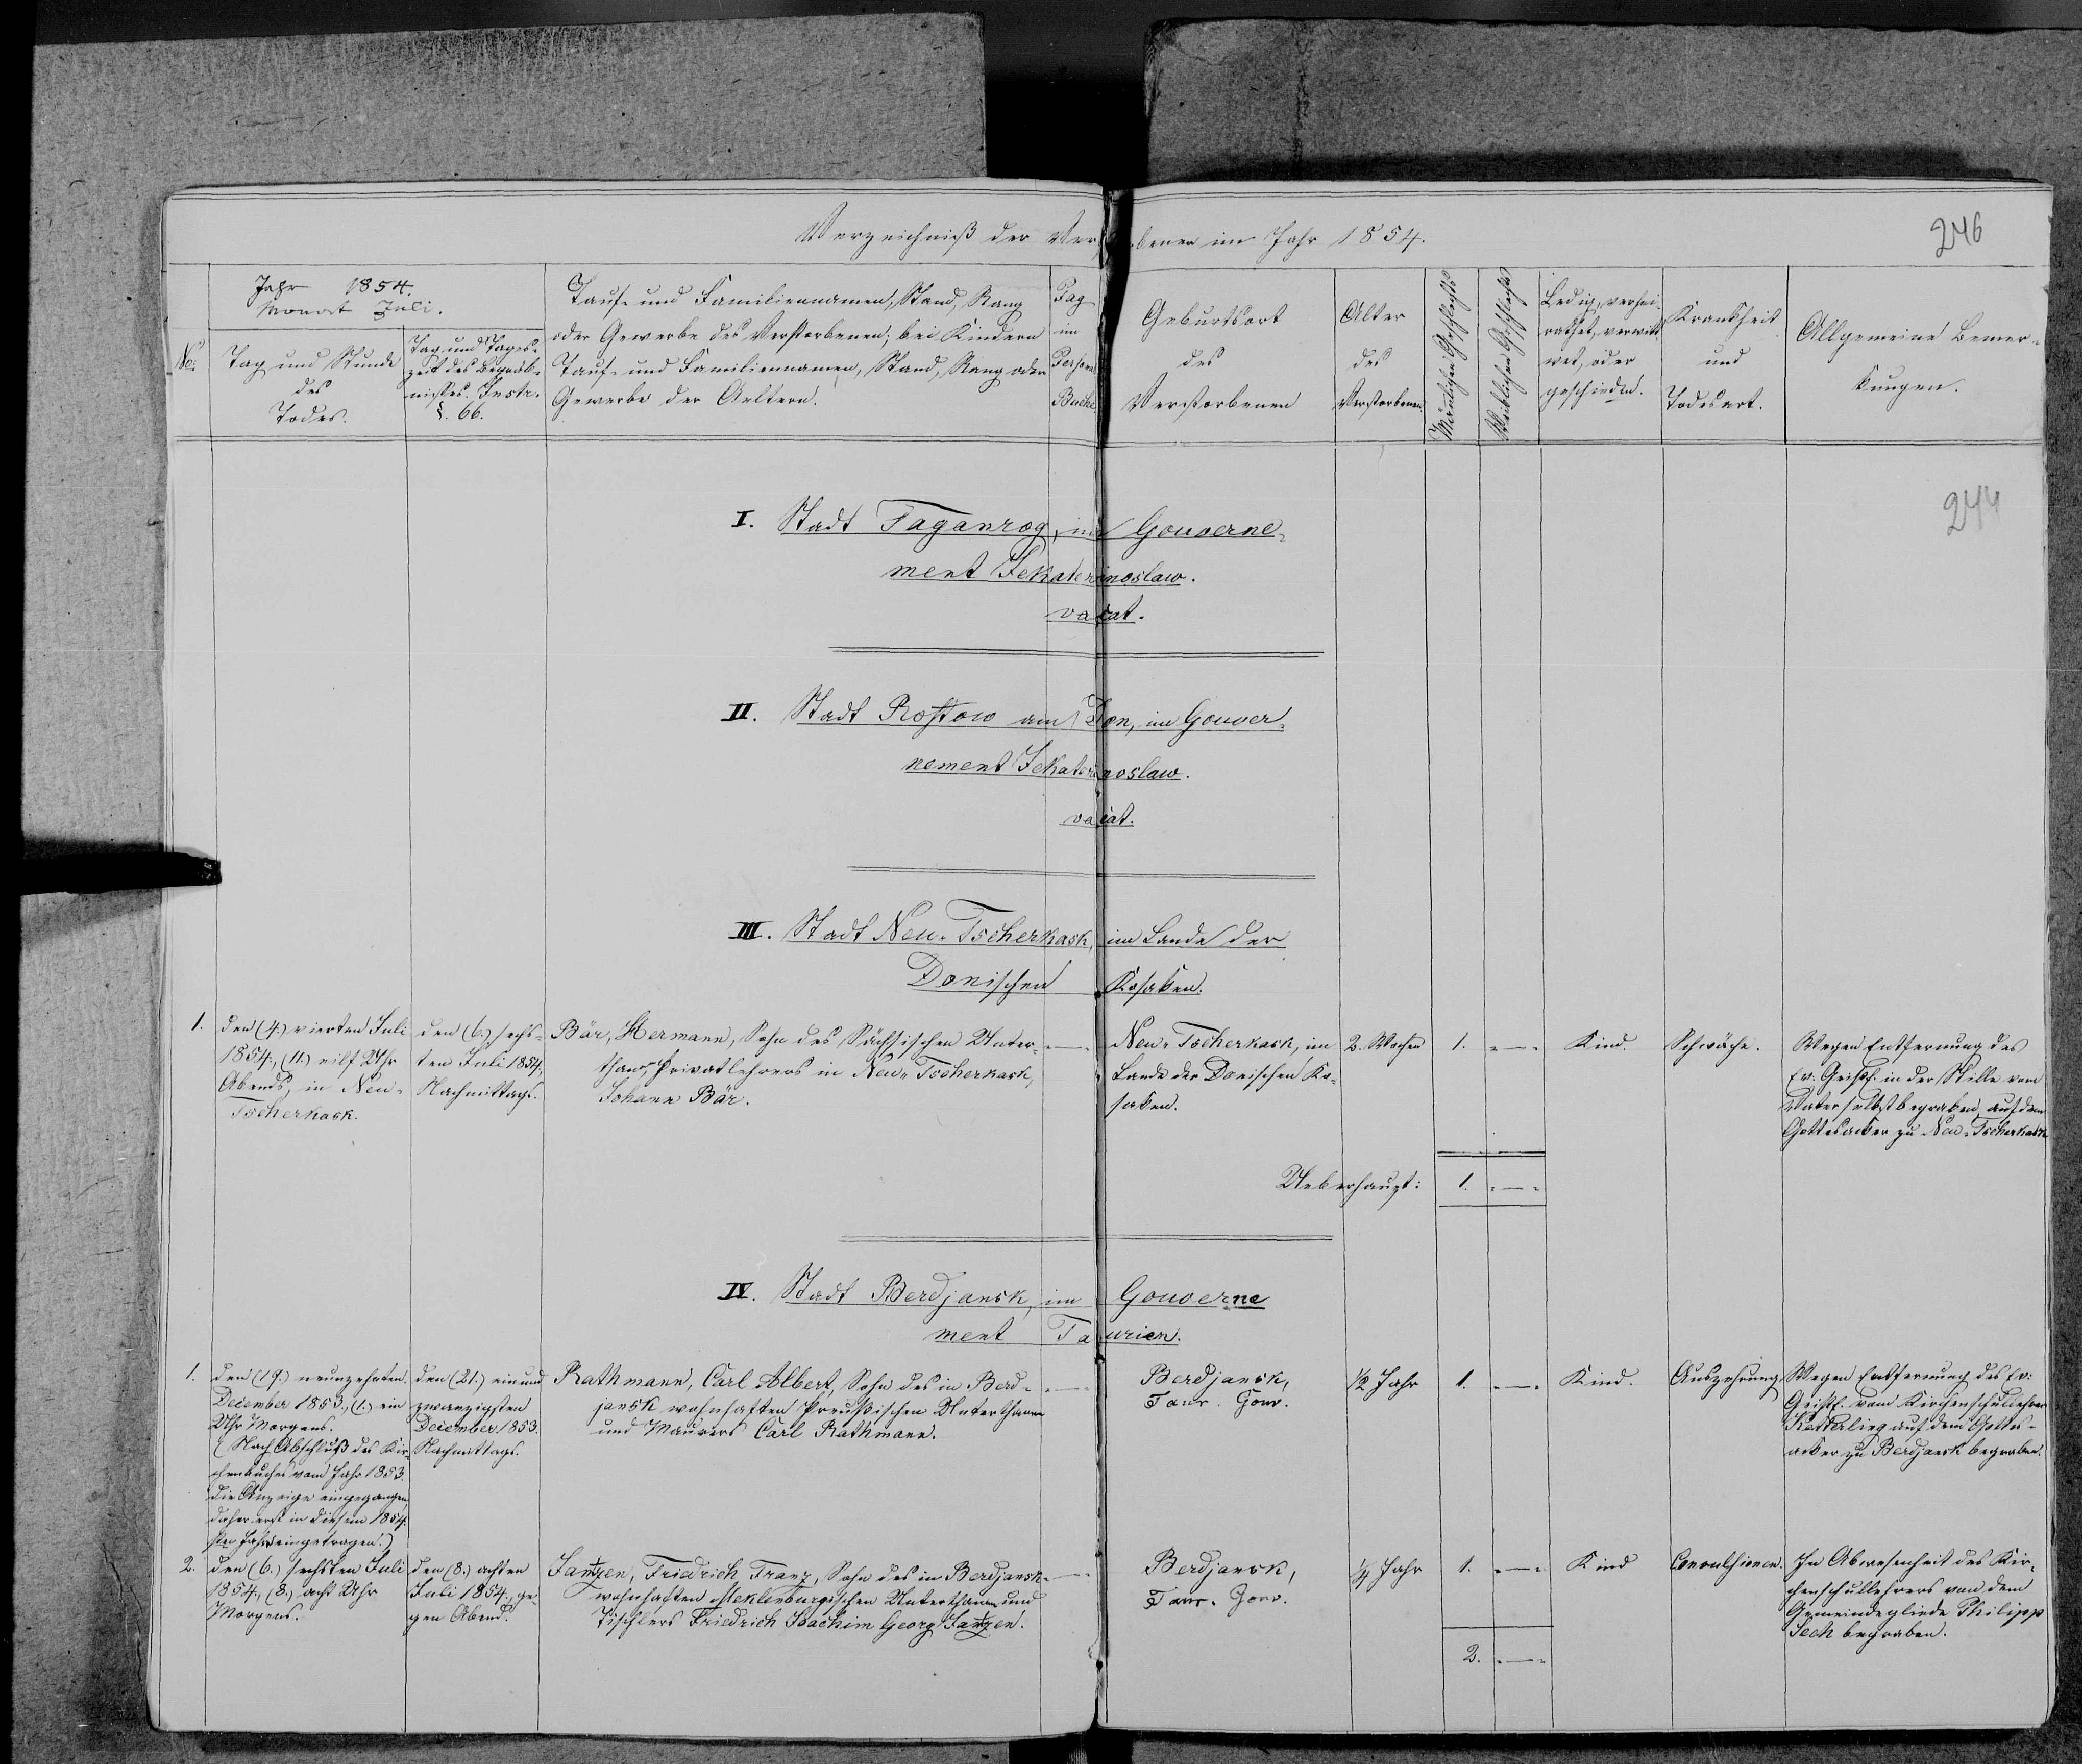 Verzeichniß der Ver benen im Jahr 1854.
246
Jahr 1854.
Monat Juli.
No:
Tag und Stunde
des
Todes.
Tag und Tages-
zeit des Begräb-
nisses. Instr.
§. 66.
Tauf- und Familiennamen, Stand, Rang
oder Gewerbe des Verstorbenen; bei Kindern
Tauf- und Familiennamen, Stand, Rang oder
Gewerbe der Aeltern.
Pag
im
Personal
Buche
Geburtsort
des
Verstorbenen
Alter
des
Verstorbenen
Männlichen Geschlechts
Weiblichen Geschlechts
Ledig, verhei-
rathet, verwitt-
wet, oder
geschieden.
Krankheit
und
Todesart.
Allgemeine Bemer-
kungen.
244
I. Stadt Taganrog, im Gouverne-
ment Jekaterinoslaw.
vacat.
II. Stadt Rostow am Don, im Gouver-
nement Jekaterinoslaw.
vacat.
III. Stadt Neu-Tscherkask, im Lande der
Donischen Kosaken.
1.
den (4.) vierten Juli
1854., (11.) eilf Uhr
Abends, in Neu-
Tscherkask.
den (6.) sechs-
ten Juli 1854.
Nachmittags.
Bär, Hermann, Sohn des Sächsischen Unter-
thans, Privatlehrers in Neu-Tscherkask,
Johann Bär.
Neu-Tscherkask, im
Lande der Donischen Ko-
saken.
2. Wochen
1.
Kind.
Schwäche.
Wegen Entfernung des
Ev: Geistl. in der Stille vom
Vater selbst begraben auf dem
Gottesacker zu Neu-Tscherkask
Ueberhaupt: 1.
IV. Stadt Berdjansk, im Gouverne
ment Taurien.
1.
den (19.) neunzehnten
December 1853., (1.) ein
Uhr Morgens.
(Nach Abschluß des Kir-
chenbuches vom Jahr 1853.
die Anzeige eingegangen,
daher erst in diesem 1854.
sten Jahre eingetragen.)
den (21.) einund
zwanzigsten
December 1853.
Nachmittags.
Rathmann, Carl Albert, Sohn des in Berd-
jansk wohnhaften Preußischen Unterthanen
und Maurers Carl Rathmann.
Berdjansk,
Taur. Gouv.
1/2 Jahr
1.
Kind.
Auszehrung
Wegen Entfernung des Ev:
Geistl. vom Kirchenschullehrer
Ketterling auf dem Gottes-
acker zu Berdjansk begraben.
2.
den (6.) sechsten Juli
1854., (8.) acht Uhr
Morgens.
den (8.) achten
Juli 1854., ge-
gen Abend.
Jantzen, Friedrich Franz, Sohn des in Berdjansk
wohnhaften Meklenburgischen Unterthanen und
Tischlers Friedrich Joachim Georg Jantzen.
Berdjansk,
Taur. Gouv.
1/4 Jahr
1.
Kind
Convulsionen.
In Abwesenheit des Kir-
chenschullehrers von dem
Gemeindegliede Philipp
Jech begraben.
2.